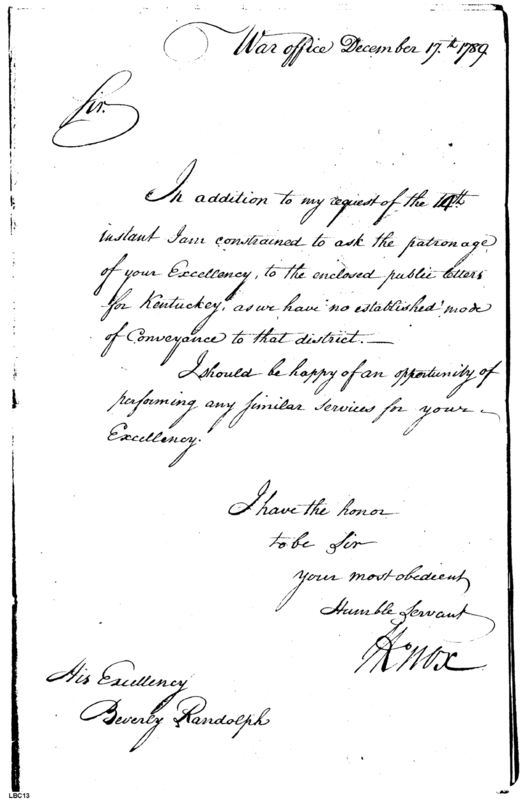 War office December 17.th 1789
Sir.
In addition to my request of the 14th
instant I am constrained to ask the patronage
of your Excellency, to the enclosed public letters
for Kentuckey, as we have no established mode
of Conveyance to that district. —
I should be happy of an opportunity of
performing any similar services for your
Excellency.
I have the honor
to be Sir
your most obedient
Humble Servant
HKnox
His Excellency
Beverly Randolph
LBC13